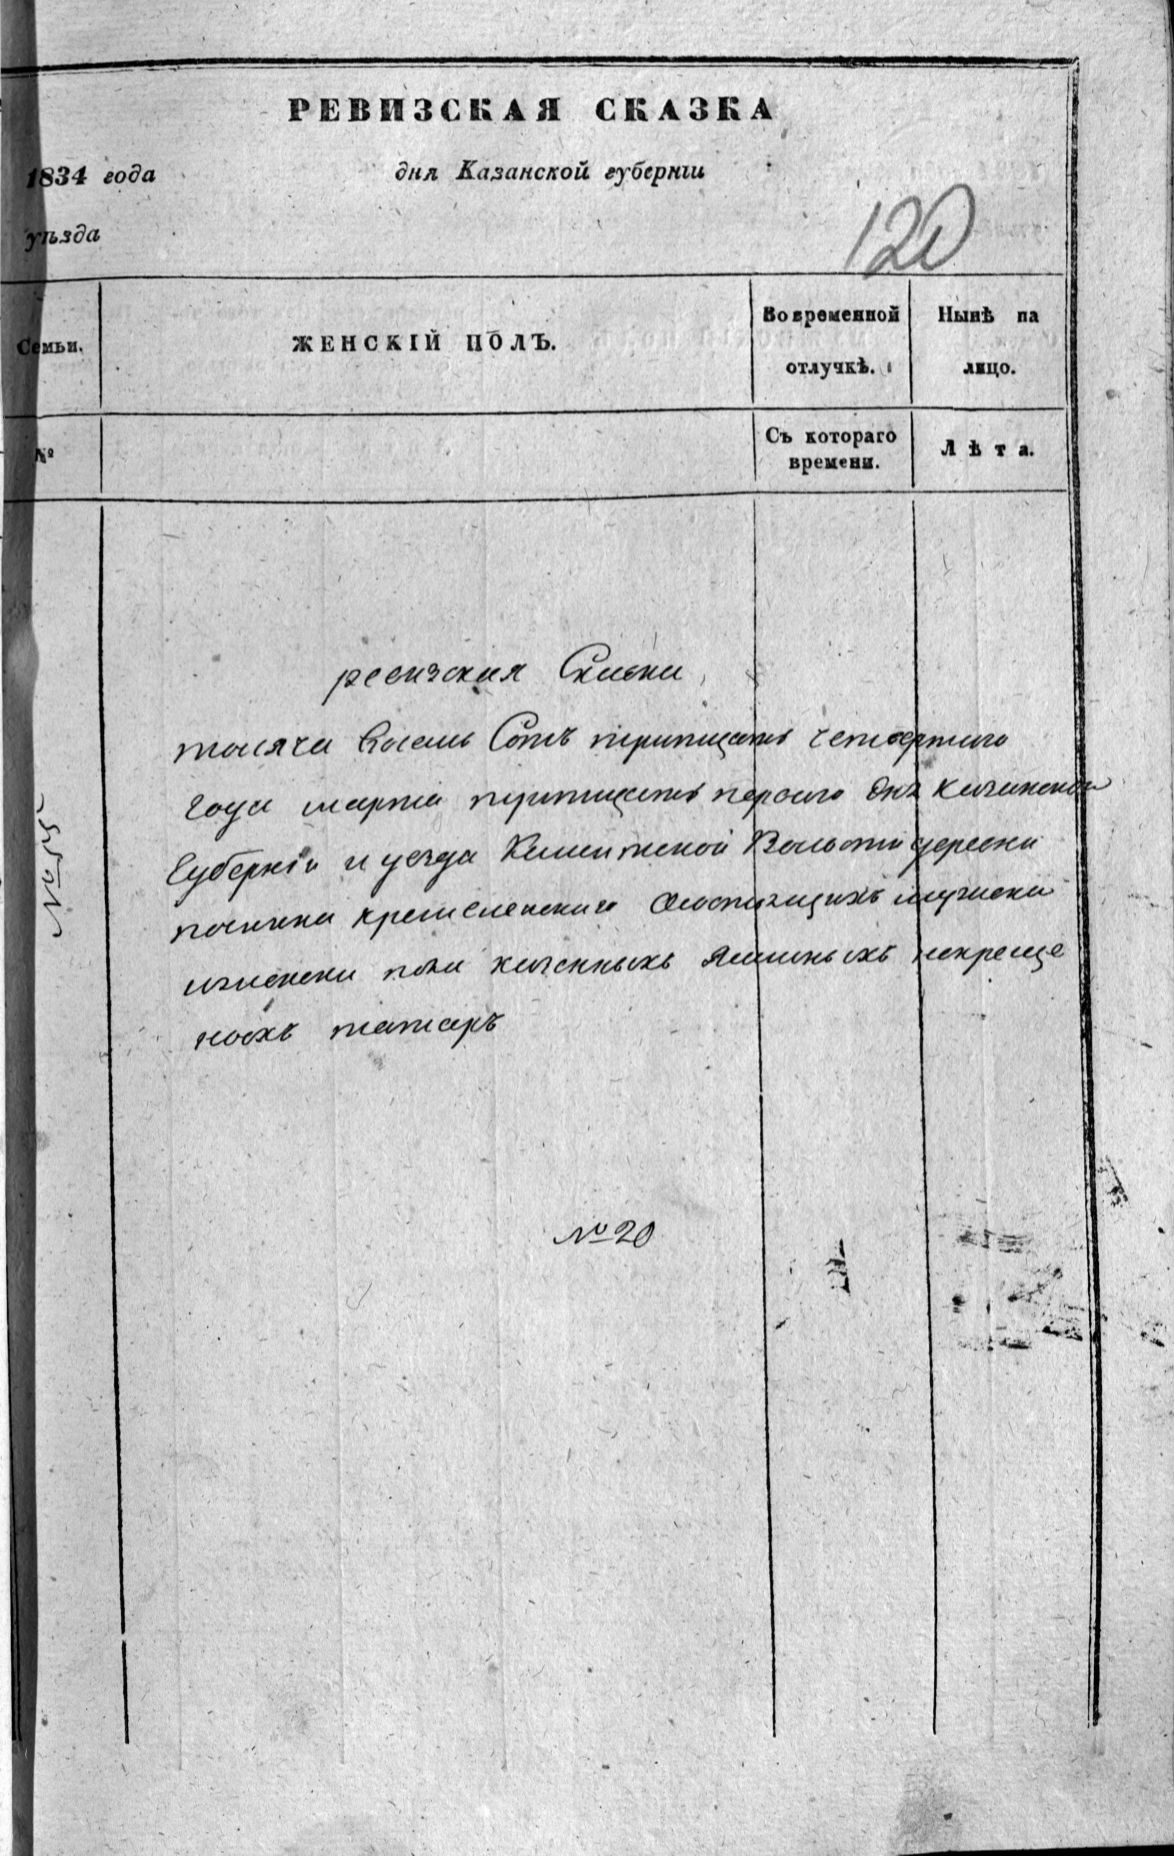 РЕВИЗСКАЯ СКАЗКА
1834 года дня Казанской губернiи
уѣзда
120
Семьи. ЖЕНСКIЙ ПОЛЪ. Во временной отлучкѣ. Нынѣ на лицо.
№ Съ котораго времени. Лѣта.
ревизская Скаска
тысяча восемь Сотъ тритцать четвертаго
года марта тритцать первого дня казанской
Губернiи и уезда Волости деревни
починка состоящихъ мужеска
иженска пола казенныхъ Ясашныхъ некреще
ныхъ татаръ
№ 20
№